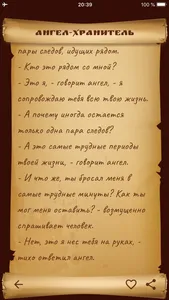 20:39
АНГЕЛ-ХРАНИТЕЛЬ
пары следов, идущих рядом.
- Кто это рядом со мной?
- Это я, - говорит ангел, - я
сопровождаю тебя всю твою жизнь.
- А почему иногда остается
только одна пара следов?
- А это самые трудные периоды
твоей жизни, - говорит ангел.
- И что же, ты бросал меня в
самые трудные минуты? Как ты
мог меня оставить? - возмущенно
спрашивает человек.
- Нет, это я нес тебя на руках, -
тихо ответил ангел.